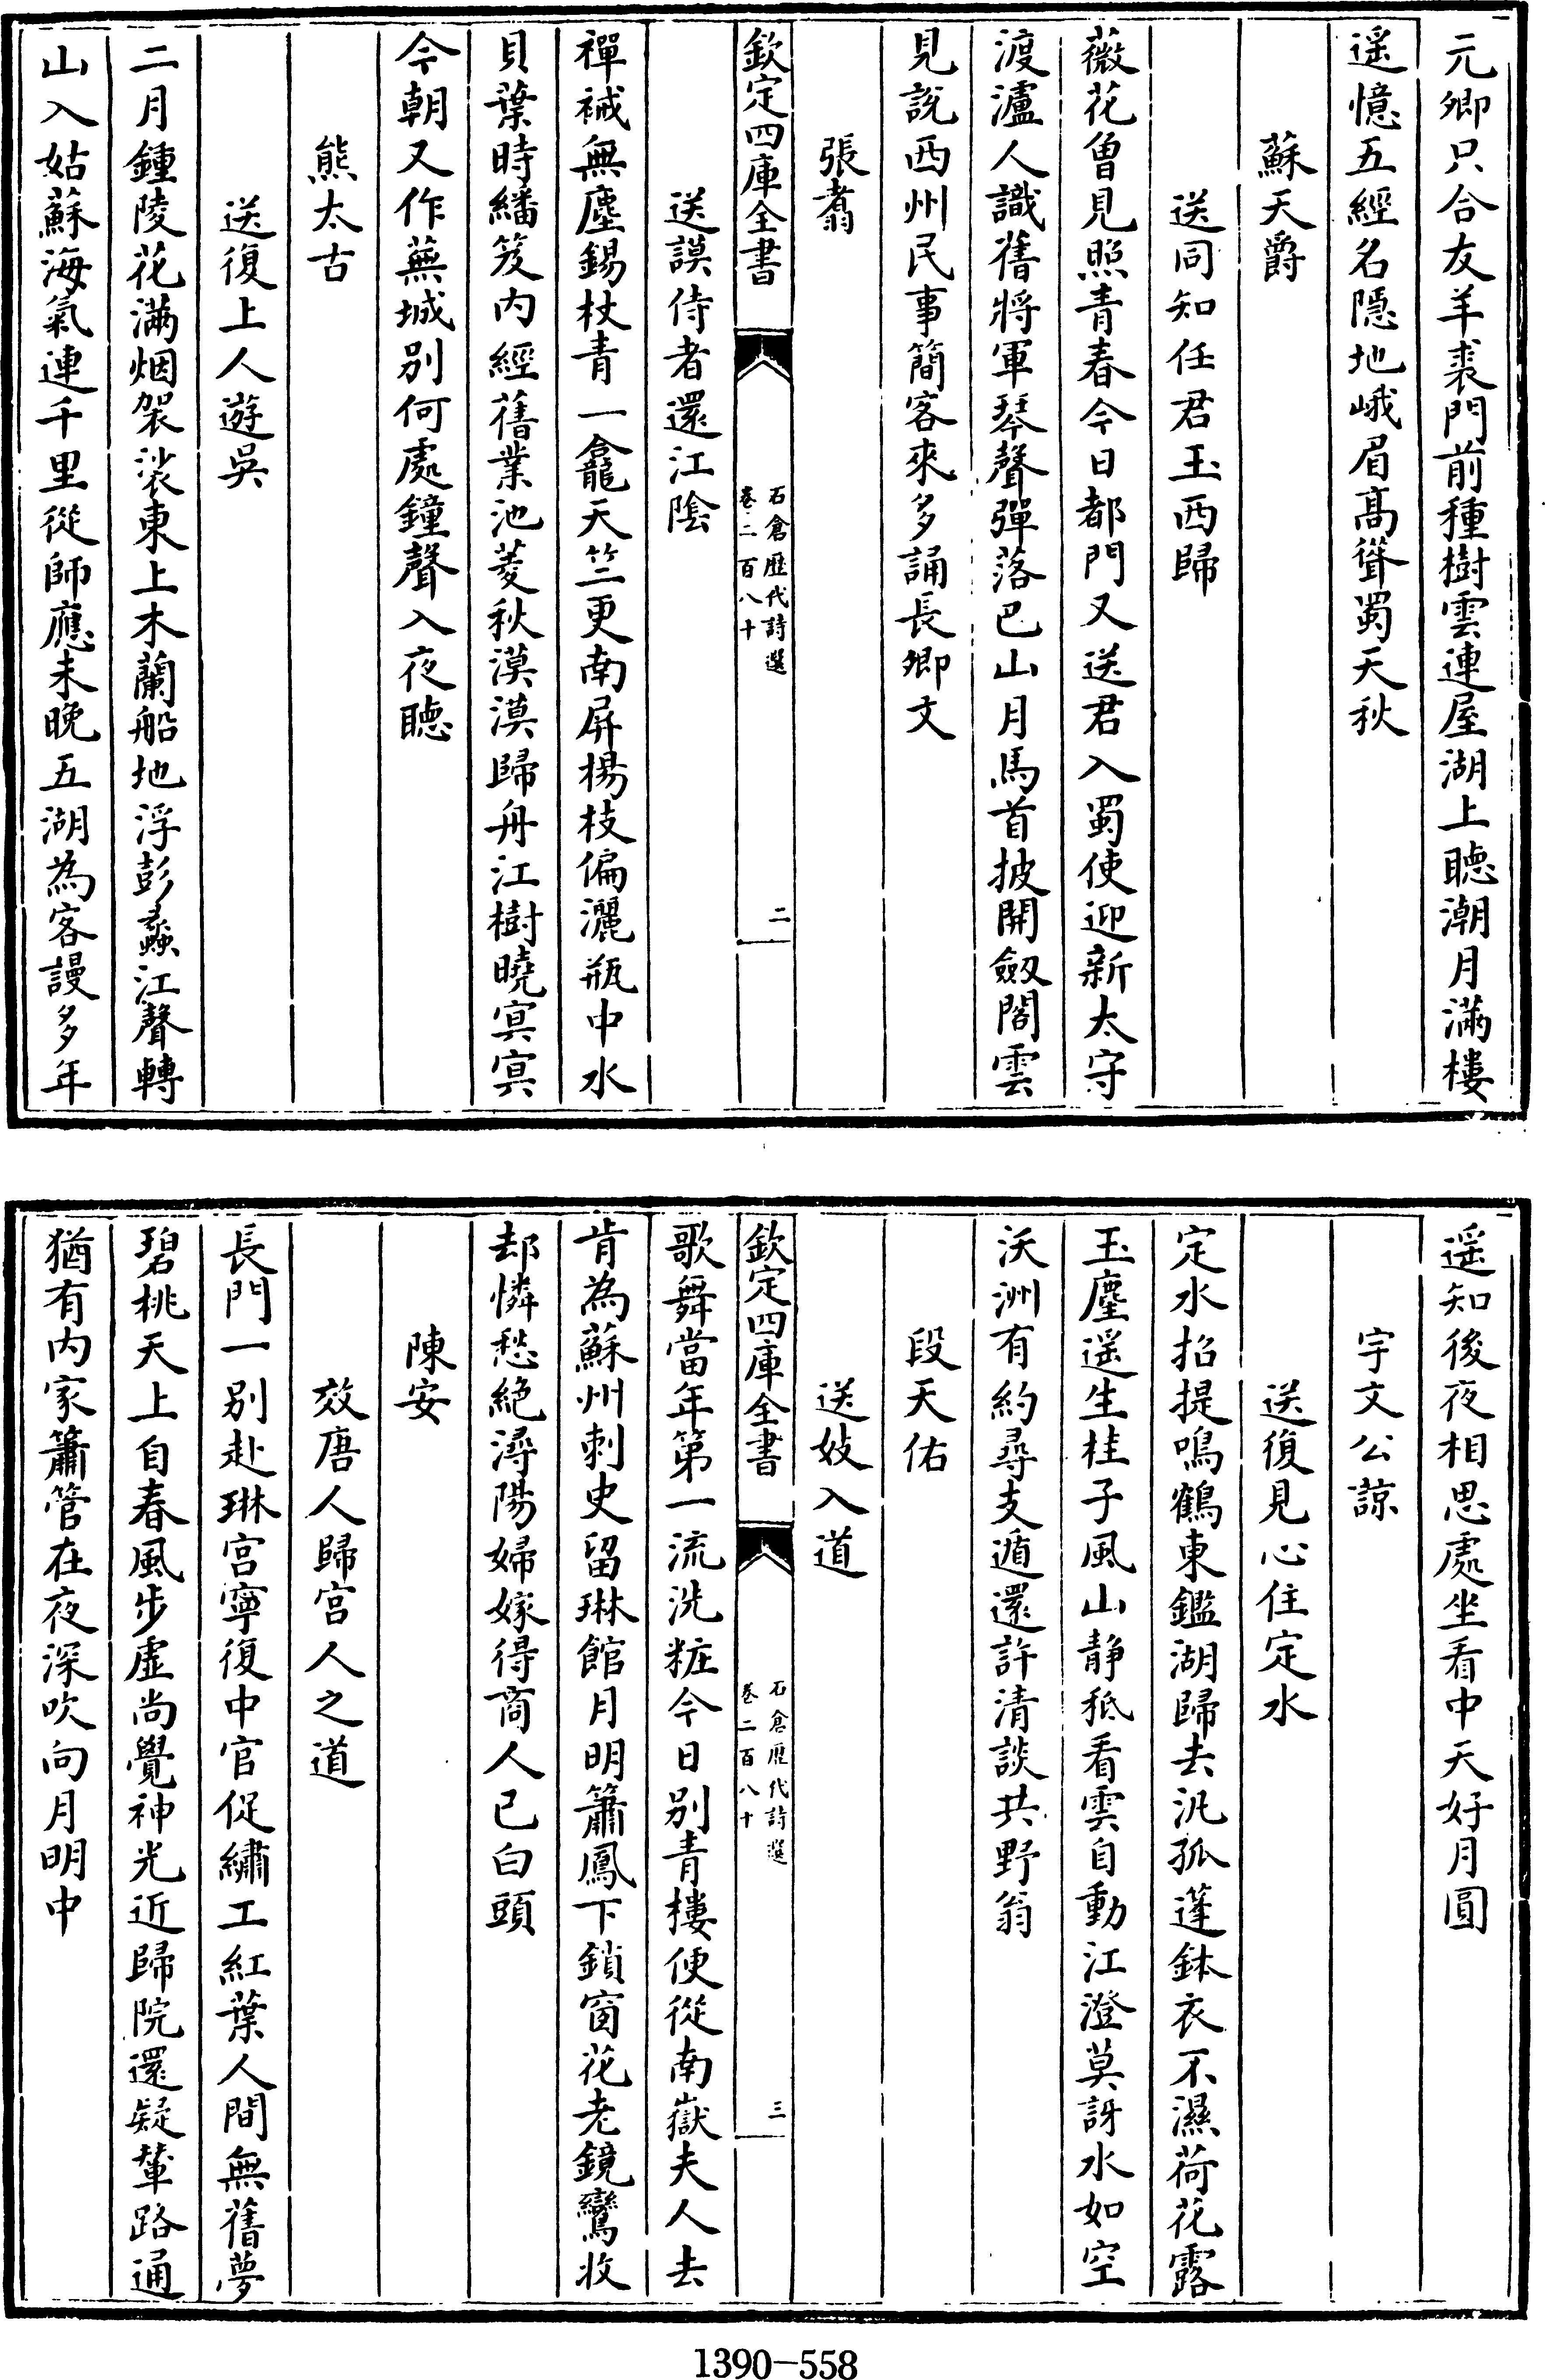 元卿只合友羊裘門前種樹雲連屋湖上聽潮月滿樓
遥憶五經名隱地峨眉髙聳蜀天秋
蘇天爵
送同知任君玉西歸
薇花曽見照青春今日都門又送君入蜀使迎新太守
渡瀘人識舊將軍琴聲彈落巴山月馬首披開劔閣雲
見説西州民事簡客來多誦長卿文
張翥
欽定四庫全書
石倉歴代詩選
卷二百八十
二
送謨侍者還江陰
禪裓無塵錫杖青一龕天竺更南屏楊枝偏灑瓶中水
貝葉時繙笈内經舊業池菱秋漠漠歸舟江樹曉㝠㝠
今朝又作蕪城别何處鐘聲入夜聽
熊太古
送復上人遊吳
二月鍾陵花滿烟袈裟東上木蘭船地浮彭蠡江聲轉
山入姑蘇海氣連千里從師應未晚五湖為客謾多年
遥知後夜相思處坐看中天好月圓
宇文公諒
送復見心住定水
定水招提鳴鶴東鑑湖歸去汎孤蓬鉢衣不濕荷花露
玉麈遥生桂子風山静秪看雲自動江澄莫訝水如空
沃洲有約尋支遁還許清談共野翁
段天佑
送妓入道
欽定四庫全書
石倉歴代詩選
卷二百八十
三
歌舞當年第一流洗粧今日别青樓便從南嶽夫人去
肯為蘇州刺史留琳館月明簫鳳下鎖窗花老鏡鸞收
却憐愁絶潯陽婦嫁得商人已白頭
陳安
效唐人歸宫人之道
長門一别赴琳宫寧復中官促繡工紅葉人間無舊夢
碧桃天上自春風步虚尚覺神光近歸院還疑輦路通
猶有内家簫管在夜深吹向月明中
1390—558